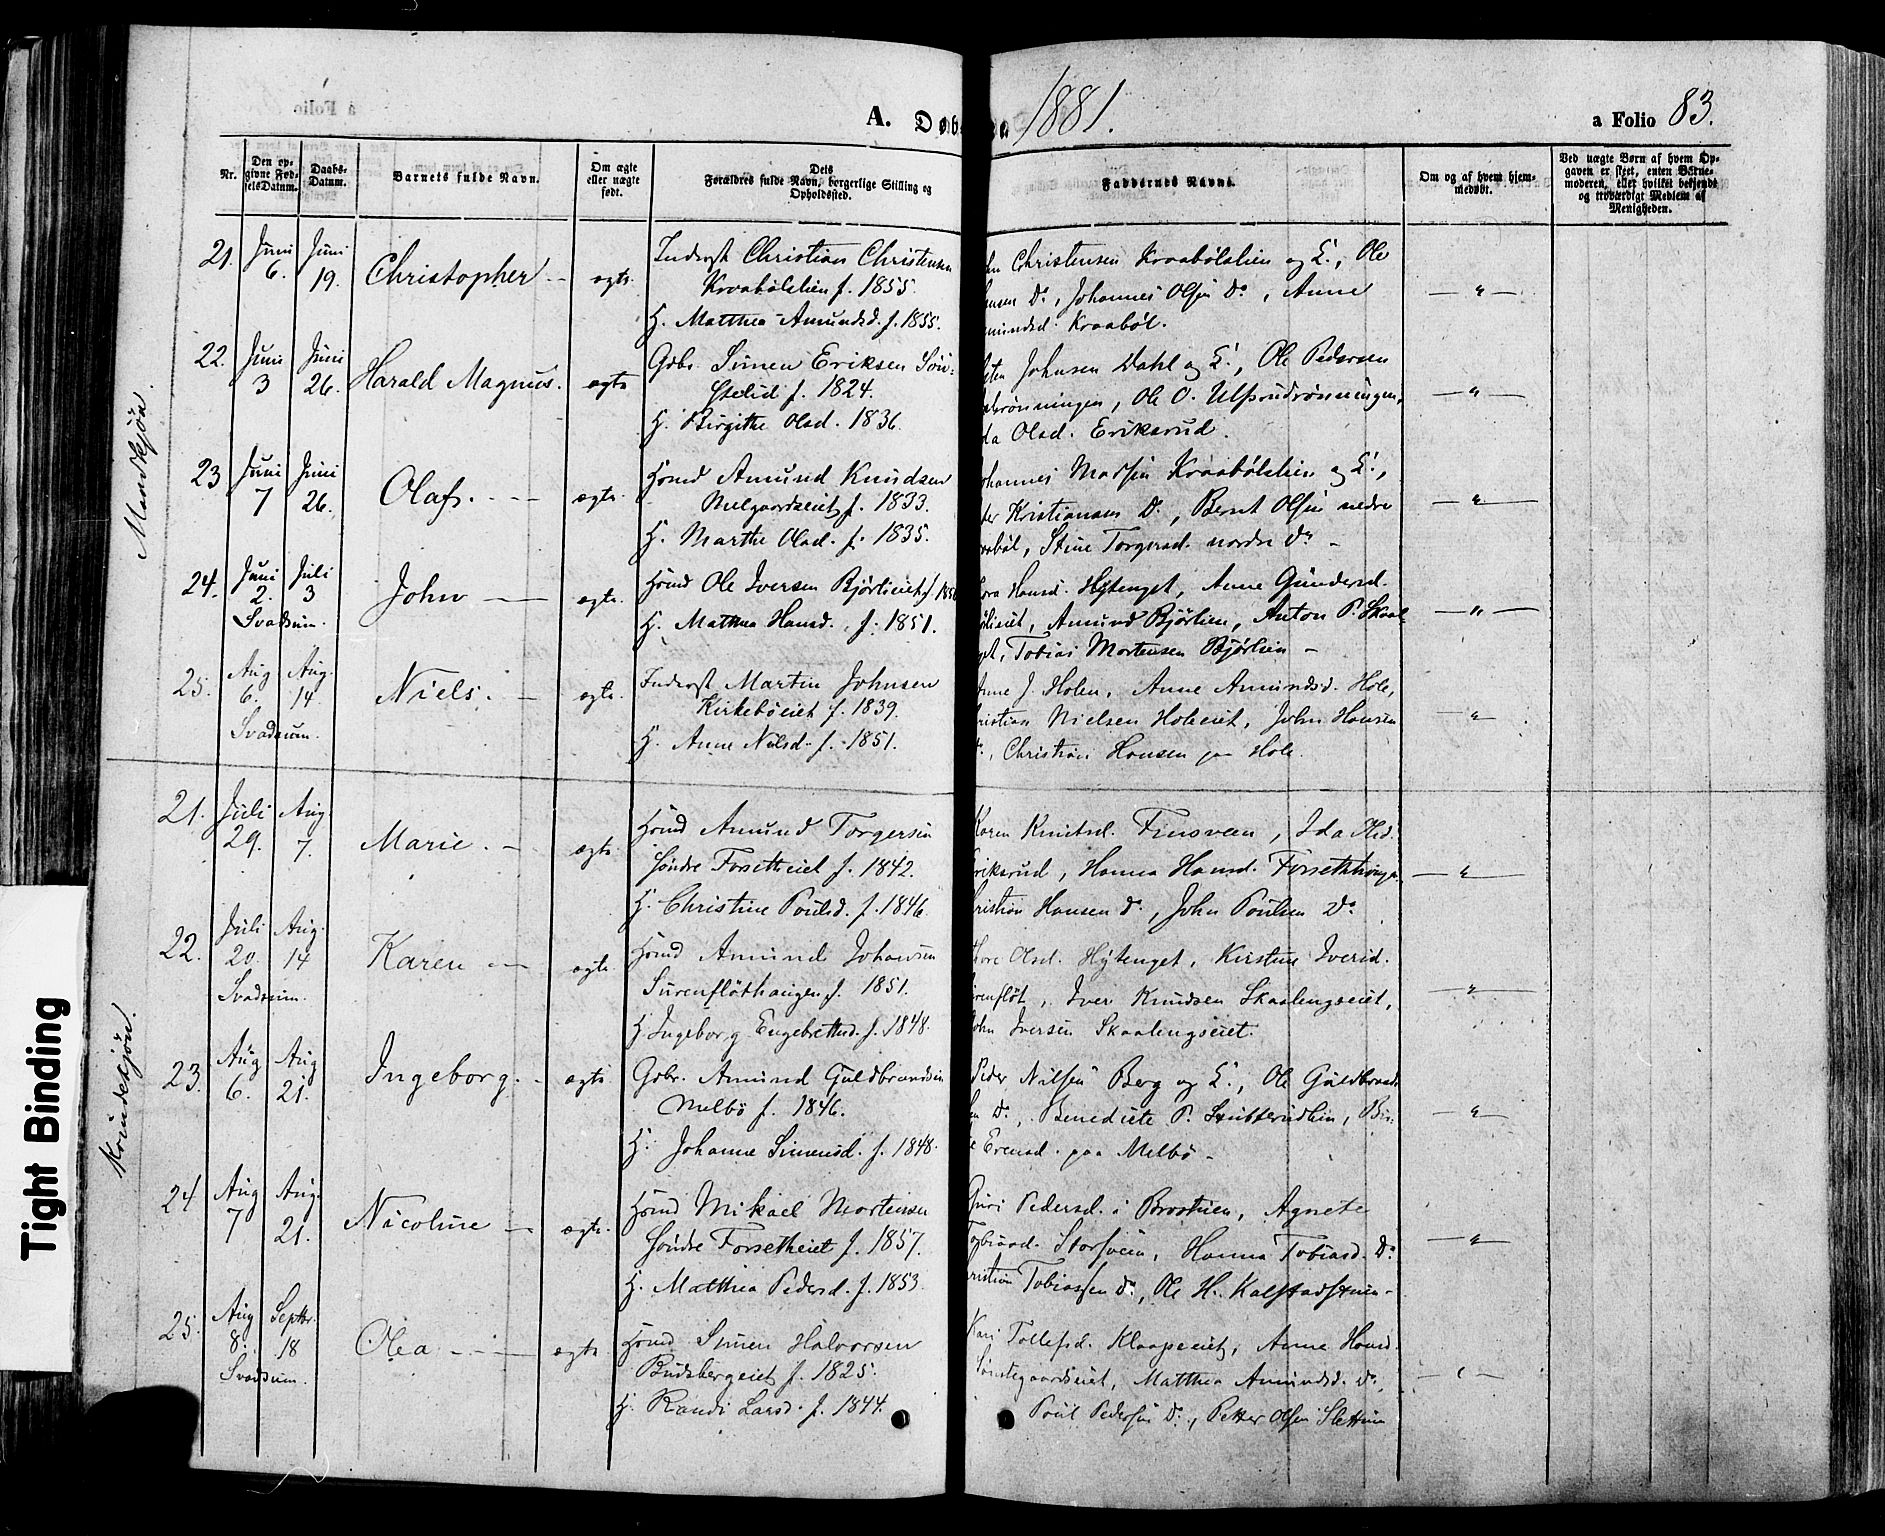 A. Døb
1881.
a Folio 83.
Nr.
Den op-
givne Fød-
selsDatum.
Daabs-
Datum.
Barnets fulde Navn.
Om ægte
eller uægte
født.
Dets
Forældres fulde Navn, borgerlige Stilling og
Opholdssted.
Faddernes Navne.
Om og af hvem hjem-
medøbt.
Ved uægte Børn af hvem Op-
gaven er skeet, enten Barne-
moderen, eller hvilket bekjendt
og troværdigt Medlem af
Menigheden.
Mandkjøn.
21. Juni 6. Juni 19. Christopher - ægte.
Inderst Christian Christensen
Kraabølslien f. 1855.
H. Matthea Amundsd. f. 1855.
Christensen Kraabølslien og L., Ole
Do, Johannes Olsen Do, Anne
Kraabøl.
22. Juni 3 Juni 26. Harald Magnus. ægte
Gbr. Simen Eriksen
f. 1824.
H. Birgithe Olsd. 1836.
Johnsen Dahl og L., Ole Pedersen
Ole O. Ulsrudrønningen,
Olsd. Eriksrud.
23 Juni 7 Juni 26. Olaf. - - - ægte.
Hsmd Amund Knudsen
f. 1833.
H. Marthe Olsd. f. 1835.
Kraabølslien og L.,
Kristiansen Do, Bernt Olsen nedre
Stine Torgersd. nordre Do -
24. Juni 2. Juli 3 John - ægte.
Svadsum.
Hsmd Ole Iversen Bjørlieiet f.
H. Mathea Hansd. f. 1851.
Hansd. Høtenget, Anne Gundersd.
Amund Bjørlien, Anton P.
Tobias Mortensen Bjørlien -
25. Aug 6. Aug. 14 Niels. - ægte.
Svadsum.
Inderst Martin Johnsen
Kirkebøeiet f. 1839.
H. Anne Nilsd. f. 1851.
J. Holen, Anne Amundsd. Hole,
Nielsen Holeeiet, John Hansen
Do, Christian Hansen paa Hole.
Kvindekjøn.
21. Juli 29. Aug 7. Marie. - ægte.
Hsmd Amund Torgersen
Søndre Forsetheiet f. 1842.
H. Christine Poulsd. f. 1846.
Karen Knudsd. Finsveen, Ida
Hanna Hansd.
Hansen Do, John Poulsen Do.
22. Juli 20. Aug. 14 Karen - ægte.
Svadsum.
Hsmd Amund Johansen
Surenflöthaugen f. 1851.
H. Ingeborg Engebretsd. f. 1848.
Olsd. Høtenget, Kirstine Iversd.
Iver Knudsen Skaalengseiet,
John Iversen Skaalengseiet.
23. Aug 6. Aug 21. Ingeborg. - ægte
Gbr. Amund Guldbrandsen
Melbö f. 1846.
H. Johanne Simensd. f. 1848.
Peder Nilsen Berg og L., Ole Guldbrand-
sen Do, Benedicte P.
paa Melbö -
24 Aug 7 Aug. 21. Nicoline - ægte.
Hsmd Mikael Mortensen
Søndre Forsetheiet f. 1857.
H. Matthea Pedersd. f. 1853
Guri Pedersd. i Agnete
Storsveen, Hanna Tobiasd. Do
Tobiassen Do, Ole H. Kalstadstuen -
25. Aug 8. Septbr. 18 Olea - - - ægte
Svadsum.
Hsmd Simen Halvorsen
Budsbergeiet f. 1825.
H. Randi Larsd. f. 1844.
Kari Tollefsd. Anne Hansd.
Matthea Amundsd. Do,
Poul Pedersen Do, Petter Olsen
Tight Binding